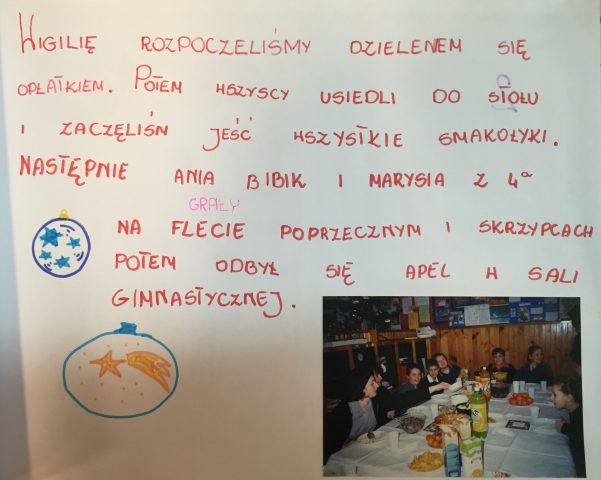 WIGILIĘ ROZPOCZELIŚMY DZIELENEM SIĘ
OPŁATKIEM. POTEM WSZYSCY USIEDLI DO STOŁU
I ZACZĘLIŚM JEŚĆ WSZYSTKIE SMAKOŁYKI.
NASTĘPNIE ANIA BIBIK I MARYSIA Z 4a
GRAŁY
NA FLECIE POPRZECZNYM I SKRZYPCACH
POTEM ODBYŁ SIĘ APEL W SALI
GIMNASTYCZNEJ.